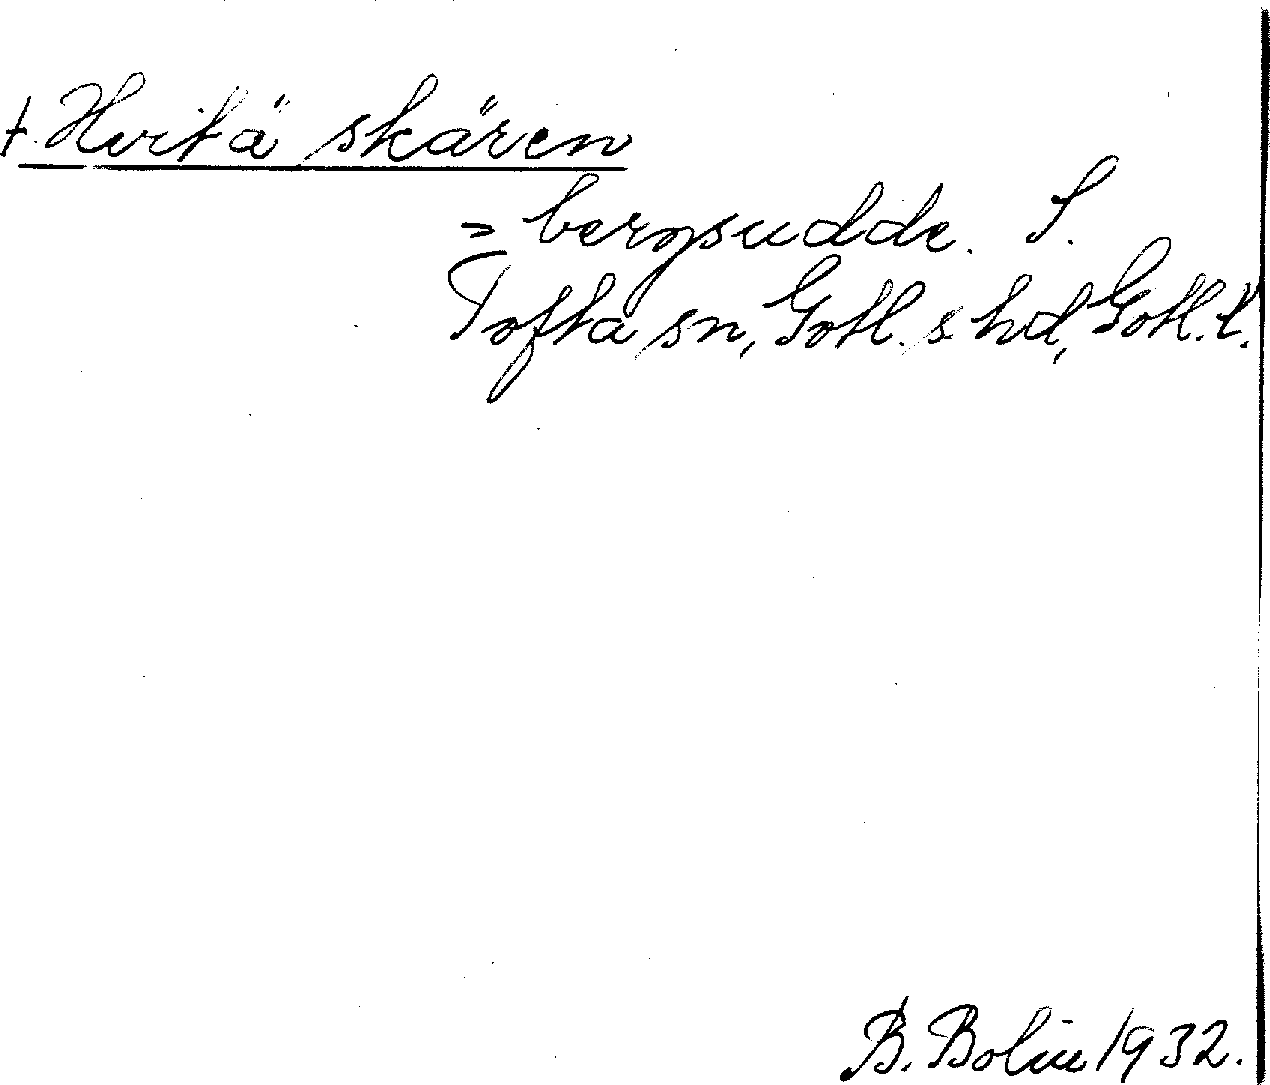 † Hvitä skären
= bergsudde. S.
Tofta sn, Gotl. s hd, Gotl. l.
B. Bolin 1932.